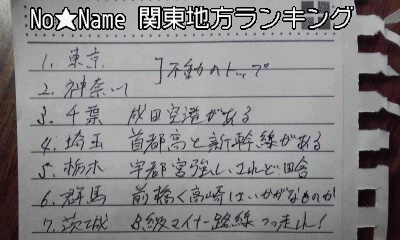 No★Name 関東地方ランキング
1. 東京 ]不動のトップ
2. 神奈川
3. 千葉 成田空港がある
4. 埼玉 首都高と新幹線がある
5. 栃木 宇都宮強し、されど田舎
6. 群馬 前橋く高崎はいかがなものか
7. 茨城 B級マイナー路線つっ走れ!